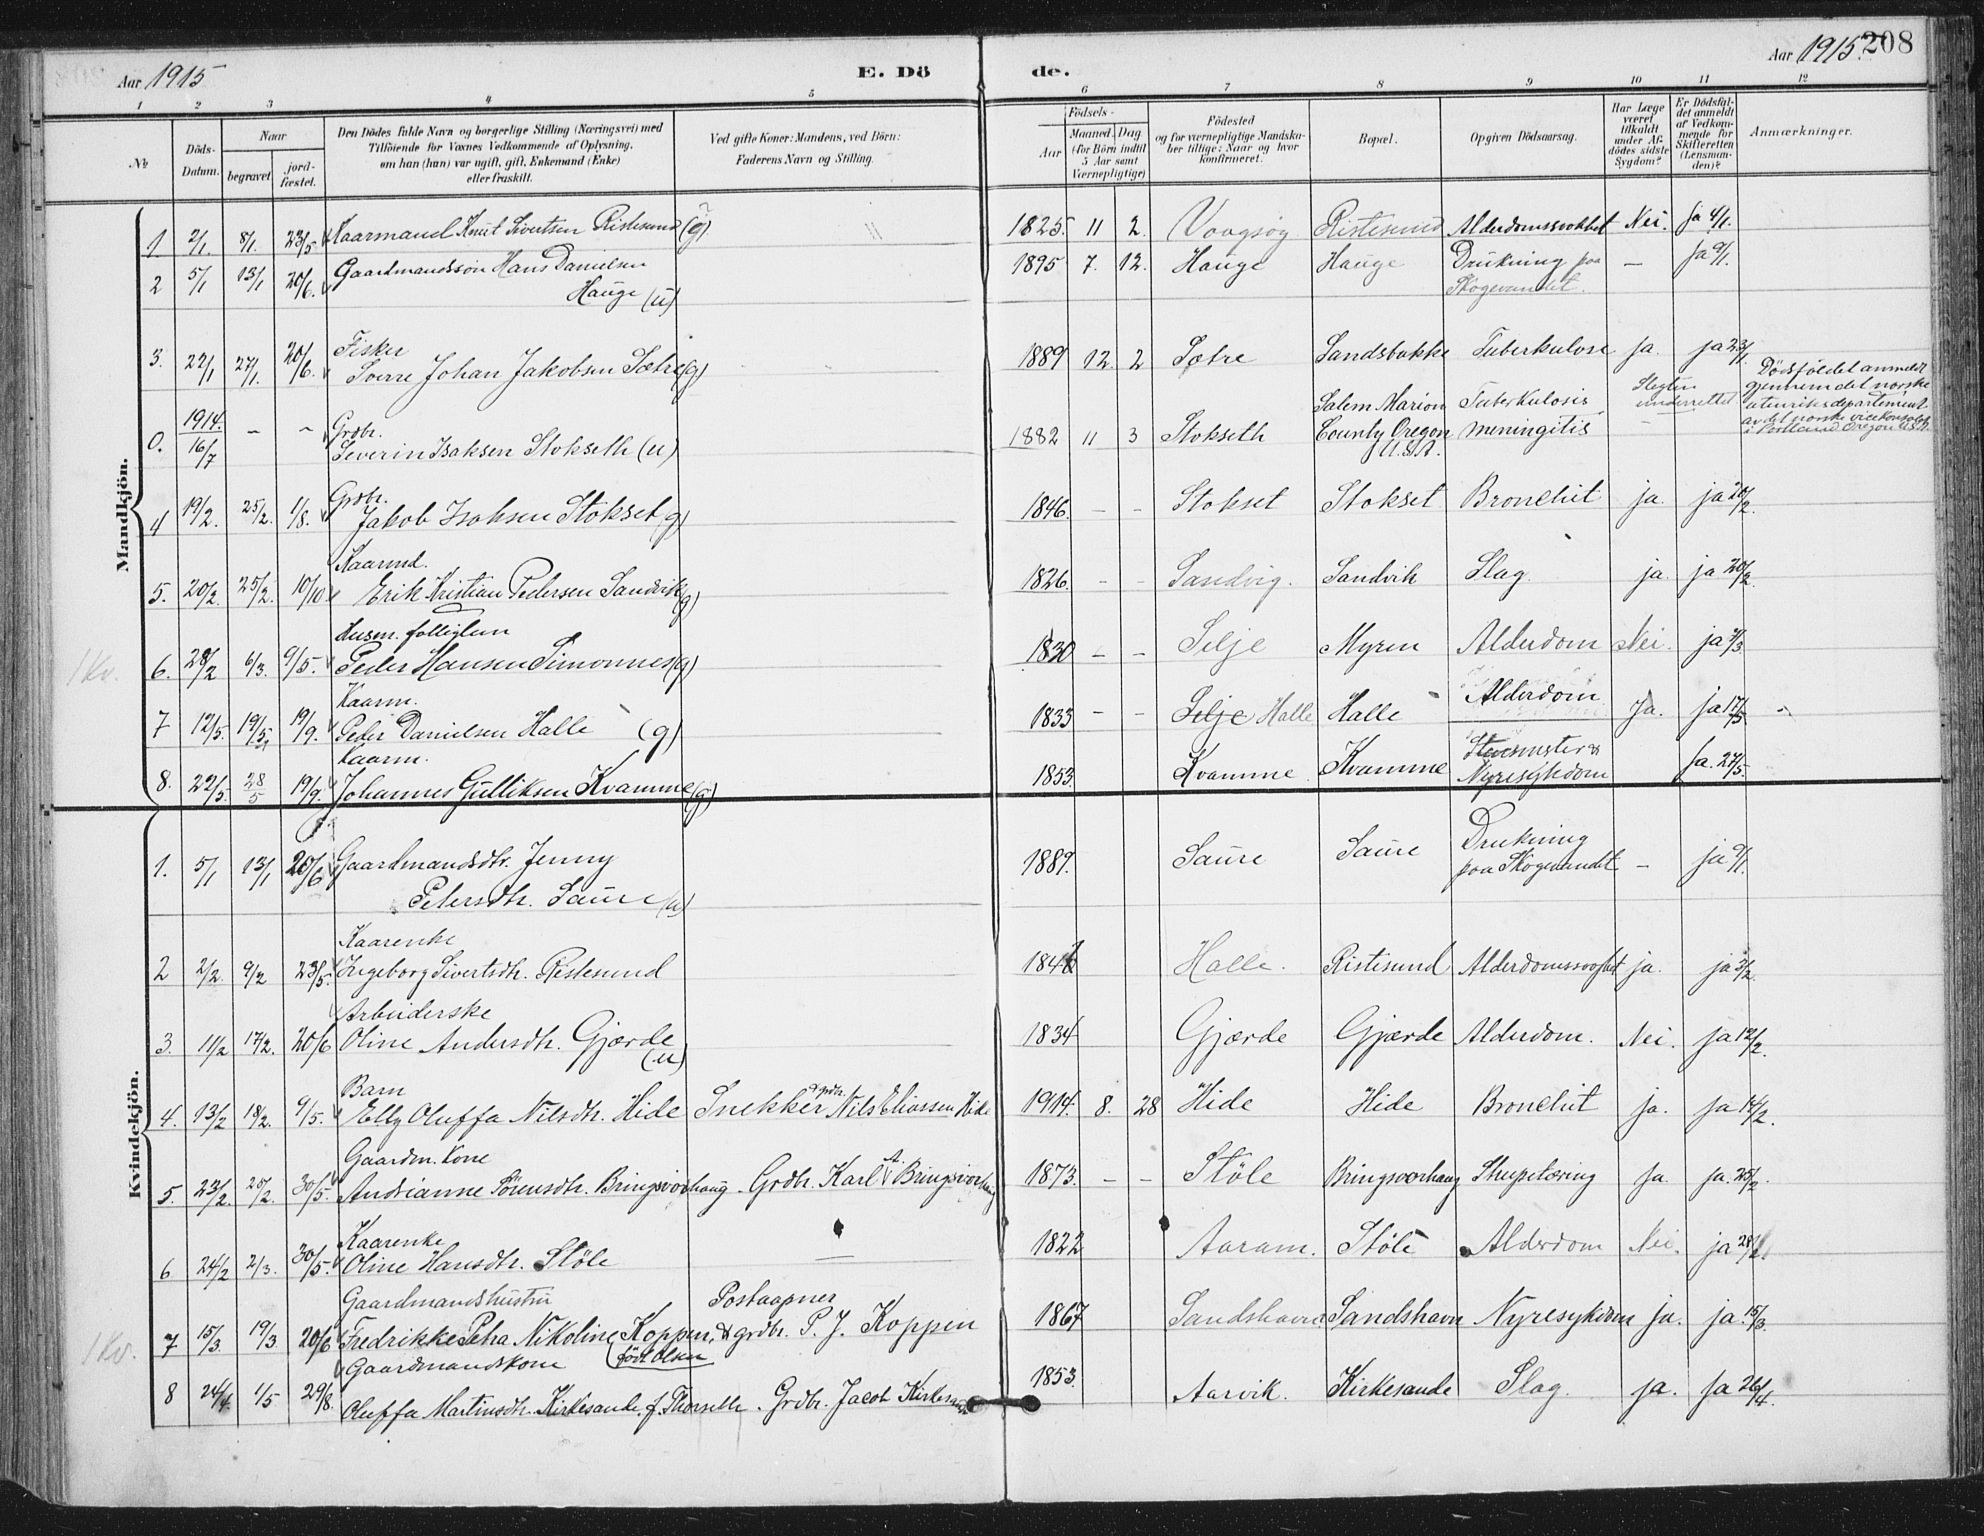 Aar 1915 E. Dö de. Aar 1915 208
1 2 3 4 5 6 7 8 9 10 11 12
№ Döds-Datum. Naar begravet. jordfæstet. Den Dödes fulde Navn og borgerlige Stilling (Næringsvei) med Tilföiende for Voxnes Vedkommende af Oplysning, om han (hun) var ugift, gift, Enkemand (Enke) eller fraskilt. Ved gifte Koner: Mandens, ved Börn: Faderens Navn og Stilling. Födsels- Aar Maaned. Dag (for Börn indtil 5 Aar samt Værnepligtige) Födested og for værnepligtige Mandskaber tillige: Naar og hvor konfirmeret. Bopæl. Opgiven Dödsaarsag. Har Læge været tilkaldt under Afdödes sidste Sygdom? Er Dödsfaldet anmeldt af Vedkommende for Skifteretten (Lensmanden)? Anmærkninger.
Mandkjön.
1 2/1 8/1 23/5 Kaarmand Knut Sivertsen Ristesund (g) 1825. 11 2. Vaagsøy Ristesund Alderdomssvakhet Nei. Ja 4/1.
2 5/1 13/1 20/6. Gaardmandssøn Hans Danielsen 1895 7. 12. Hauge Hauge Drukning paa — Ja 9/1.
Hauge (u) Skogevandet.
3. 22/1 27/1. 20/6. Fisker
Sverre Johan Jakobsen Sætre (g) 1889 12. 2 Sætre Sandsbakke Tuberkulose ja. ja 23/1.
0. 1914 16/7 – – Grdbr. Salem Marion Tuberkulosis Slegten underrettet Dödsfaldet anmeldt gjennem det norske utenriksdepartement av det norske vicekonsulat i Portland Oregon U.S.A.
Severin Isaksen Stokseth (u) 1882 11 3 Stokseth County Oregon U.S.A. meningitis –
4 19/2. 25/2. 1/8. Grdbr.
Jakob Isaksen Stokset (g) 1846. – – Stokset Stokset Bronchit ja. ja 20/2.
5. 20/2. 25/2. 10/10 Kaarmd.
Erik Kristian Pedersen Sandvik (g) 1826. – – Sandvig. Sandvik Slag. ja. ja 20/2.
1 Kv. 6. 28/2 6/3. 9/5. Husm. folliglem
Peder Hansen Simonnes (g) 1830 – – Selje Myren Alderdom Nei. ja /3
7 12/5. 19/5 19/9. Kaarm.
Peder Danielsen Halle (g) 1833 – – Selje Halle Halle Alderdom Ja. ja 17/5
8. 22/5. 28/5 19/9. Kaarm.
Johannes Gulliksen Kvamme (g) 1853. Kvamme Kvamme Nyresykdom Ja. 27/5.
Kvindekjön.
1. 5/1 13/1 20/6 Gaardmandsdtr. Jenny 1889. Saure Saure Drukning paa Skogevandet – ja 9/1.
Petersdtr. Saure (u)
2 2/2. 9/2 23/5. Kaarenke
Ingeborg Sivertsdtr. Ristesund Halle. Ristesund ja. ja 3/2.
3. 11/2 17/2. 20/6 Arbeiderske
Oline Andersdtr. Gjærde (u) 1834 Gjærde Gjærde Alderdom. Nei. ja 12/2.
4. 13/2 18/2. 9/5. Barn
Elly Oluffa Nilsdtr. Hide Snekker & grdbr. Nils Eliassen Hide 1914. 8. 28 Hide Hide Bronchit ja. ja 14/2.
5. 23/2. /2. 30/5. Gaardm. Kone
Andrianne Sörensdtr. Bringsvorhaug. Grdbr. Karl A. Bringsvorhaug 1873. – – Stöle Bringsvorhaug Strupetæring ja. ja. 25/2.
6 24/2 2/3. 30/5. Kaarenke
Oline Hansdtr. Stöle — 1822 Aaram. Stöle Alderdom Nei. ja 28/2
1 Kv. 7 15/3. 19/3 20/6 Gaardmandshustru Postaapner
Fredrikke Peha Nikoline Koppen, & grdbr. P. J. Koppen 1867 Sandshavn Sandshavn Nyresykdom ja. ja. 15/3.
(født Olsen
8 24/4 1/5 29/8. Gaardmandskone
Oluffa Martinsdtr. Kirkesande f. Thorseth. Grdbr. Jacob Kirkesande 1853. Aarvik. Kirkesande Slag. ja. Ja 26/4.